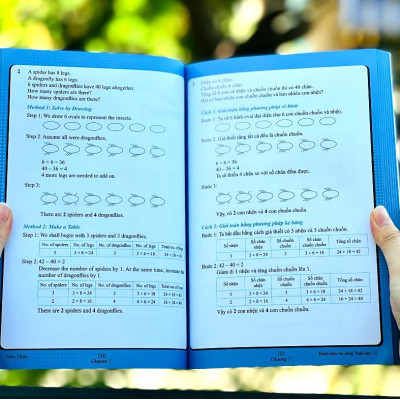 2 A spider has 8 legs.
A dragonfly has 6 legs.
6 spiders and dragonflies have 40 legs altogether.
How many spiders are there?
How many dragonflies are there?
Method 1: Solve by Drawing
Step 1: We draw 6 ovals to represent the insects.
Step 2: Assume all were dragonflies.
6 × 6 = 36
40 – 36 = 4
4 more legs are needed to add on.
Step 3:
There are 2 spiders and 4 dragonflies.
Method 2: Make a Table
Step 1: We shall begin with 3 spiders and 3 dragonflies.
No. of spiders No. of legs No. of dragonflies No. of legs Total no. of
3 3 × 8 = 24 3 3 × 6 = 18 24 + 18 = 42
Step 2: 42 – 40 = 2
Decrease the number of spiders by 1. At the same time, increase
number of dragonflies by 1.
No. of spiders No. of legs No. of dragonflies No. of legs Total no. of
3 3 × 8 = 24 3 3 × 6 = 18 24 + 18 = 42
2 2 × 8 = 16 4 4 × 6 = 24 16 + 24 = 40
There are 2 spiders and 4 dragonflies.
180
Chapter 7
2 Nhện có 8 chân.
Chuồn chuồn 6 chân.
Tổng số 6 con cả nhện và chuồn chuồn thì có 40 chân.
Hỏi có bao nhiêu con chuồn chuồn và bao nhiêu con nhện?
Cách 1: Giải toán bằng phương pháp vẽ hình
Bước 1: Ta vẽ 6 hình oval đại diện cho 6 con chuồn chuồn và nhện.
Bước 2: Giả thiết rằng tất cả đều là chuồn chuồn.
6 × 6 = 36
40 – 36 = 4
Ta sẽ thiếu 4 chân so với số chân đếm được.
Bước 3:
Vậy, có 2 con nhện và 4 con chuồn chuồn.
Cách 2: Giải toán bằng phương pháp kẻ bảng
Bước 1: Ta bắt đầu bằng cách giả thiết có 3 nhện và 3 chuồn chuồn.
Số nhện Số chân nhện Số chuồn chuồn Số chân chuồn chuồn Tổng số chân
3 3 × 8 = 24 3 3 × 6 = 18 24 + 18 = 42
Bước 2: 42 – 40 = 2
Giảm đi 1 nhện và tăng chuồn chuồn lên 1.
Số nhện Số chân nhện Số chuồn chuồn Số chân chuồn chuồn Tổng số chân
3 3 × 8 = 24 3 3 × 6 = 18 24 + 18 = 42
2 2 × 8 = 16 4 4 × 6 = 24 16 + 24 = 40
Vậy có 2 con nhện và 4 con chuồn chuồn.
181
Chương 7